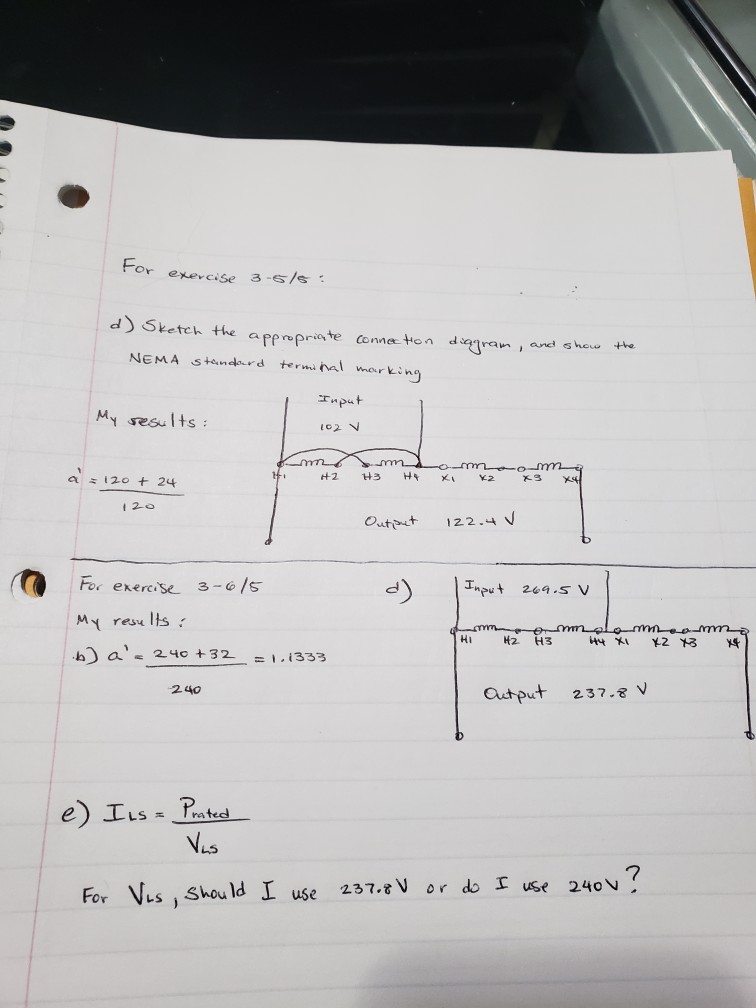 For exercise 3-5/5 :
d) Sketch the appropriate connection diagram, and show the
NEMA standard terminal marking
My results :
a' = 120 + 24
120
Input
102 V
H1 H2 H3 H4 X1 X2 X3 X4
Output 122.4 V
For exercise 3-6/5
My results :
b) a' = 240 + 32 = 1.1333
240
d)
Input 269.5 V
H1 H2 H3 H4 X1 X2 X3 X4
Output 237.8 V
e) ILS = Prated
VLS
For VLS, should I use 237.8 V or do I use 240 V?